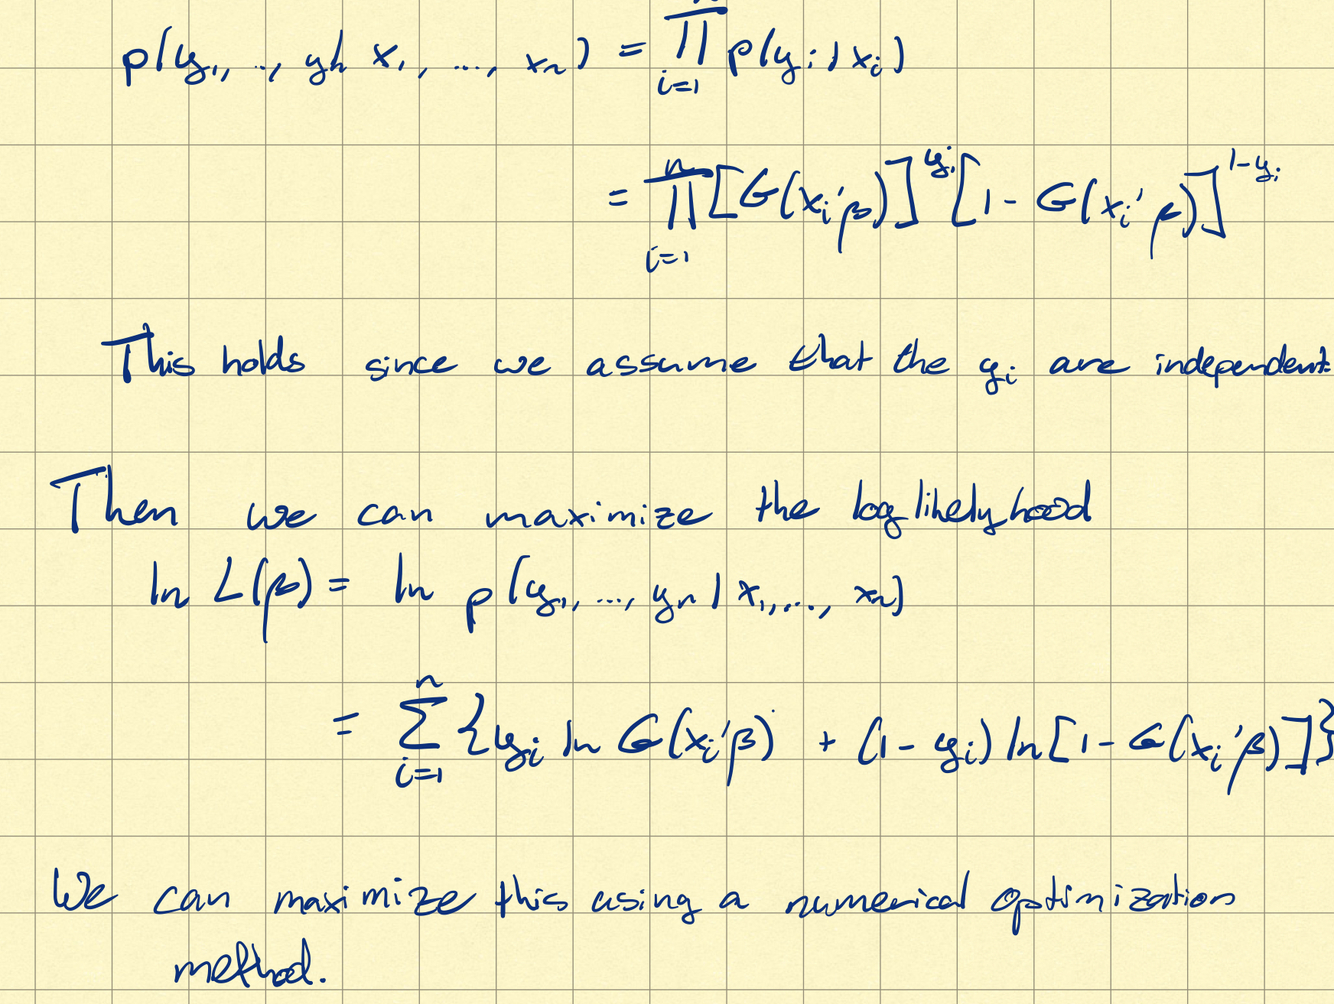 p(y₁, .., yn| x₁, ..., xₙ) = ∏ᵢ₌₁ⁿ p(yᵢ | xᵢ)
= ∏ᵢ₌₁ⁿ [G(xᵢ'β)]^yᵢ [1 - G(xᵢ'β)]^1-yᵢ
This holds since we assume that the yᵢ are independent
Then we can maximize the loglikelyhood
ln L(β) = ln p(y₁, ..., yₙ | x₁, ..., xₙ)
= ∑ᵢ₌₁ⁿ {yᵢ ln G(xᵢ'β) + (1 - yᵢ) ln[1 - G(xᵢ'β)]}
We can maximize this using a numerical optimization
method.